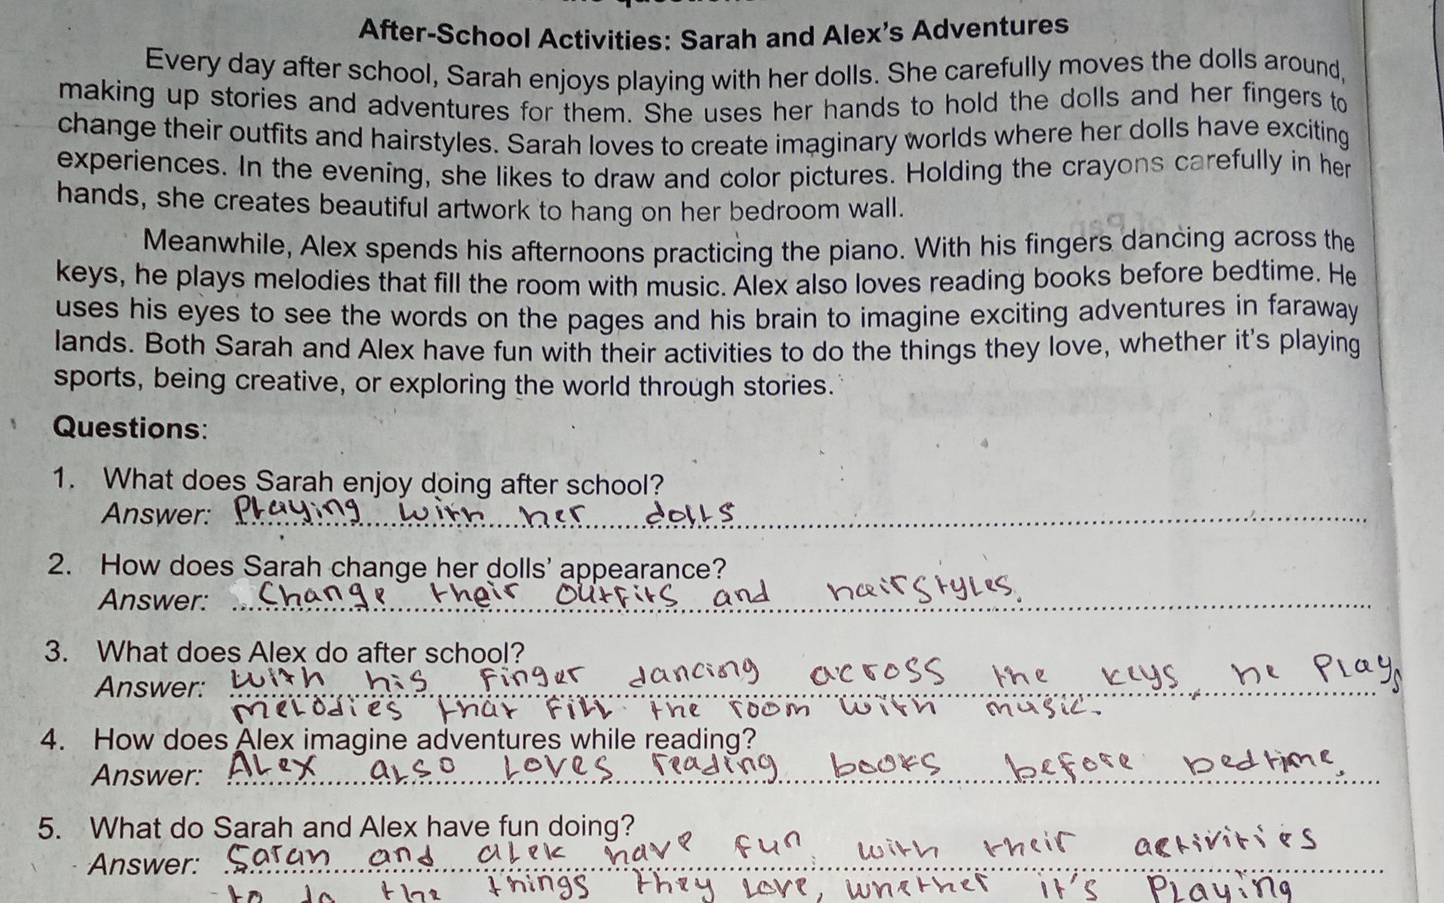 After-School Activities: Sarah and Alex's Adventures
Every day after school, Sarah enjoys playing with her dolls. She carefully moves the dolls around,
making up stories and adventures for them. She uses her hands to hold the dolls and her fingers to
change their outfits and hairstyles. Sarah loves to create imaginary worlds where her dolls have exciting
experiences. In the evening, she likes to draw and color pictures. Holding the crayons carefully in her
hands, she creates beautiful artwork to hang on her bedroom wall.
Meanwhile, Alex spends his afternoons practicing the piano. With his fingers dancing across the
keys, he plays melodies that fill the room with music. Alex also loves reading books before bedtime. He
uses his eyes to see the words on the pages and his brain to imagine exciting adventures in faraway
lands. Both Sarah and Alex have fun with their activities to do the things they love, whether it's playing
sports, being creative, or exploring the world through stories.
Questions:
1. What does Sarah enjoy doing after school?
Answer: Playing with her dolls
2. How does Sarah change her dolls' appearance?
Answer: Change their outfits and hairstyles.
3. What does Alex do after school?
Answer: with his finger dancing across the keys, he plays
melodies that fill the room with music.
4. How does Alex imagine adventures while reading?
Answer: Alex also loves reading books before bedtime.
5. What do Sarah and Alex have fun doing?
Answer: Sarah and alek have fun with their activities
to do the things they love, whether it's playing